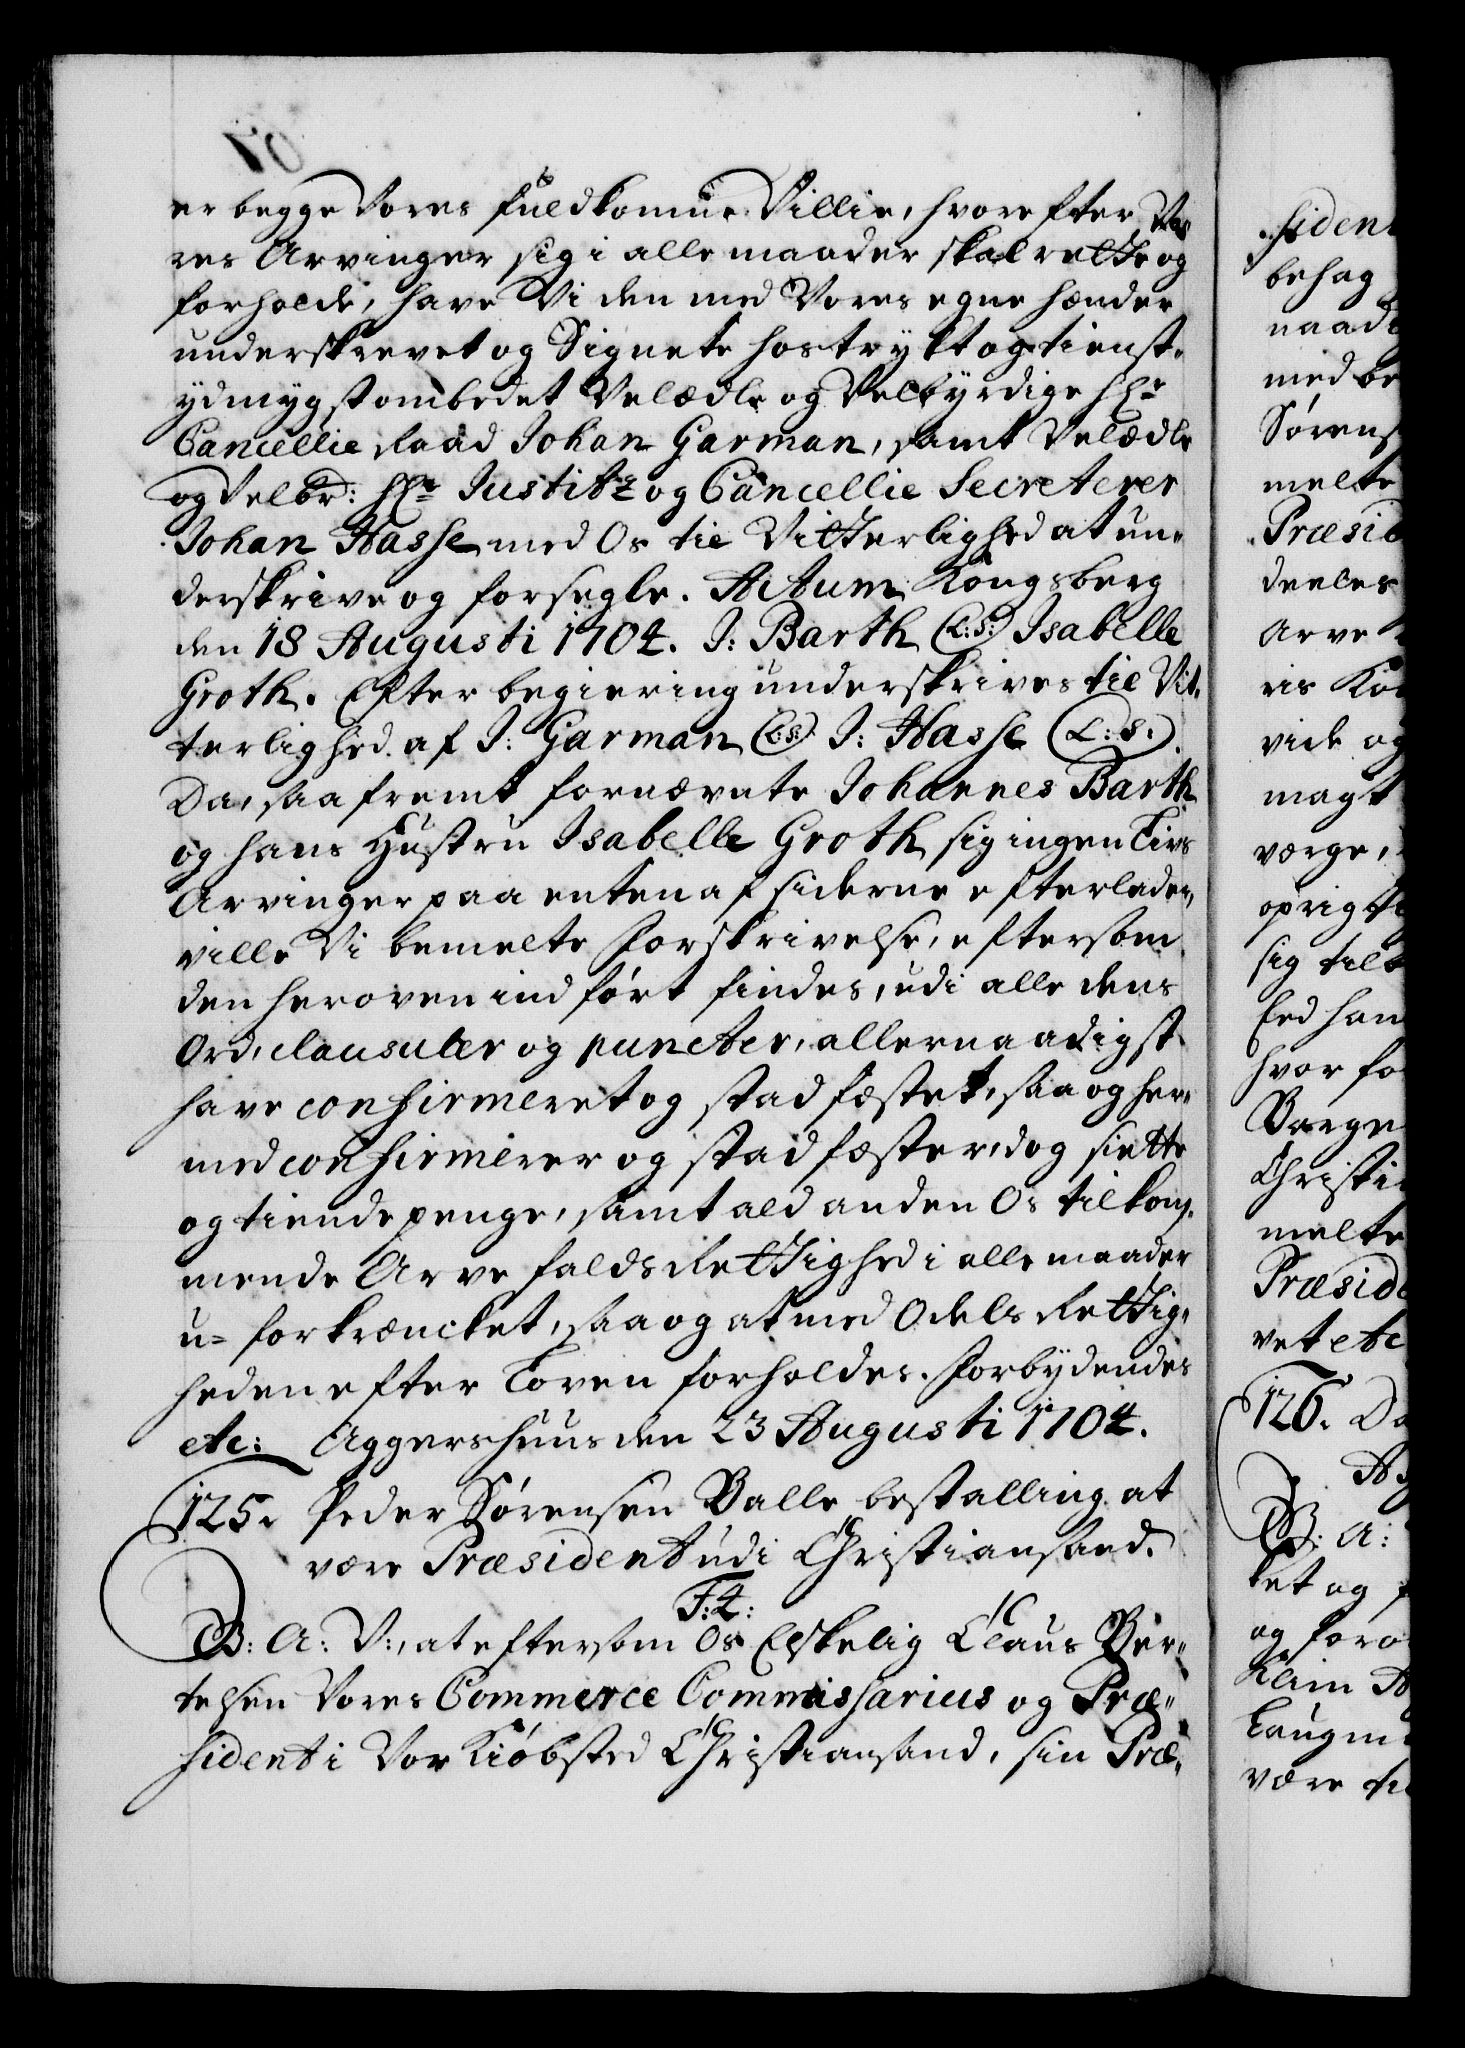 er begge Vores fuldkomne Villie, hvorefter Vo,,
res Arvinger sig i alle maader skal rette og
forholde, have Vi den med Vores egne hænder
underskrevet og Signete hostrykt og tienst,,
ydmygst ombedet Velædle og Velbyrdige Hr:
Cancellie Raad Johan Garman, samt Velædle
og Velbr: Hr: Justitz og Cancellie Secreterer
Johan Hasse med Os til Vitterlighed at un,,
derskrive og forsegle. Actum Kongsberg
den 18 Augusti 1704. J: Barth (L:S:) Isabelle
Groth. Efter begiering underskrives til Vit,,
terlighed af J: Garman (L:S:) J: Hasse (L:S:).
Da, saafremt fornævnte Johannes Barth
og hans Hustru Isabelle Groth sig ingen Livs
Arvinger paa enten af siderne efterlader,
ville Vi bemelte Forskrivelse, eftersom
den heroven indført findes, udi alle dens
Ord, clausuler og puncter, allernaadigst
have confirmeret og stadfæstet, saa og her,,
med confirmerer og stadfæster, dog siette
og tiende penge, samt ald anden Os tilkom,,
mende Arvefalds Rettighed i alle maader
u= forkræncket, saa og at med Odels Rettig,,
heden efter Loven forholdes. Forbydendes
etc: Aggershuus den 23 Augusti 1704.
125. Peder Sørensen Balle bestalling at
være Præsident udi Christiansand.
F: 4:
G: A: V:, at eftersom Os Elskelig Claus Ber,,
telsen Vores Commerce Commissarius og Præ,,
sident i Vor Kiøbsted Christiansand, sin Præ,,
sident
behag
naad
med be
Sørens
melte
Præsid
deeles
Arve
ris Kon
vide og
magt
værge,
oprigti
sig til
Eed han
hvor fo
Borge
Christi
melte
Præside
vet etc
126. Da
G: A:
ket og f
og foro
Laugm
være ti